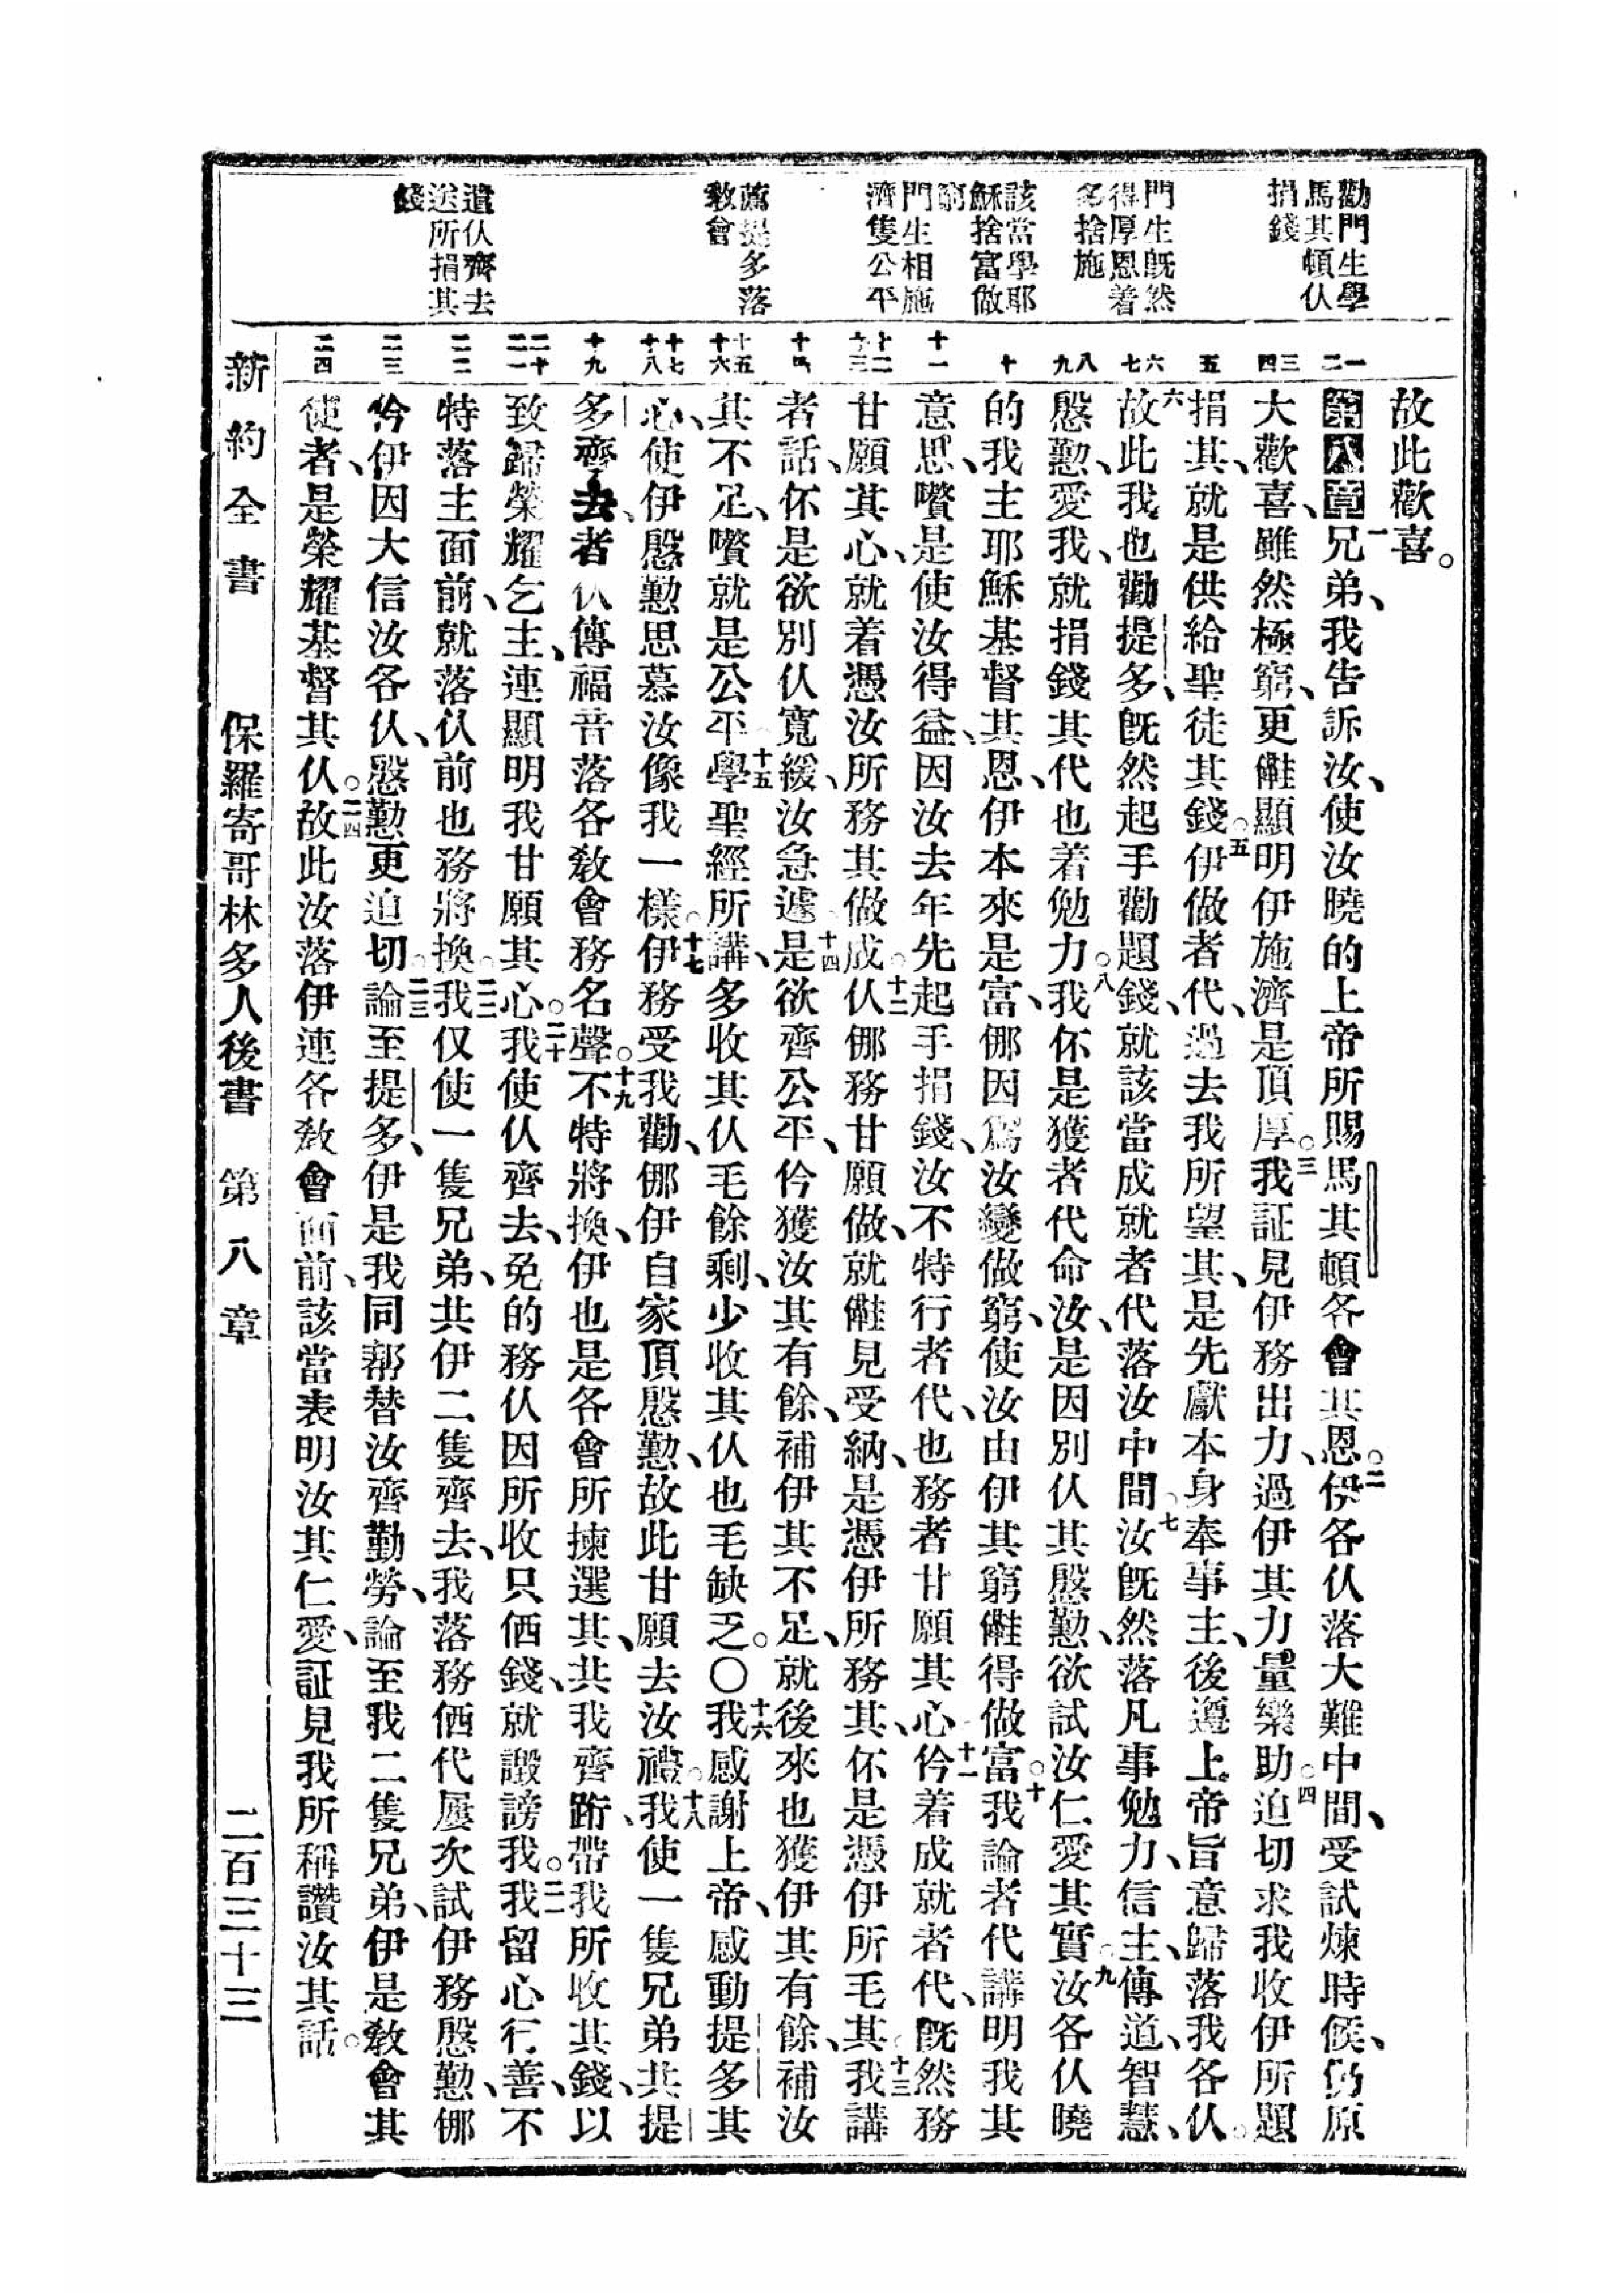 勸門生學
馬其頓仈
捐錢
門生旣然
得厚恩着
多捨施
該當學耶
穌捨富做
窮
門生相施
濟隻公平
薦提多落
敎會
遣仈齊去
送所捐其
錢
一
二
三
四
五
六
七
八
九
十
十一
十二
十三
十四
十五
十六
十七
十八
十九
二十
二一
二二
二三
二四
故此歡喜。
第八章一兄弟、我告訴汝、使汝曉的上帝所賜馬其頓各會其恩。二伊各仈落大難中間、受試煉時候、仍原
大歡喜、雖然極窮、更䧹顯明伊施濟是頂厚。三我証見伊務出力、過伊其力量樂助。四迫切求我收伊所題
捐其、就是供給聖徒其錢。五伊做者代、過去我所望其、是先獻本身奉事主、後遵上帝旨意歸落我各仈。
六故此我也勸提多、旣然起手勸題錢、就該當成就者代落汝中間。七汝旣然落凡事勉力、信主、傳道、智慧、
慇懃、愛我、就捐錢其代也着勉力。八我伓是獲者代命汝、是因別仈其慇懃、欲試汝仁愛其實。九汝各仈曉
的我主耶穌基督其恩、伊本來是富、㑚因爲汝變做窮、使汝由伊其窮䧹得做富。十我論者代講明我其
意思、嚽是使汝得益、因汝去年先起手捐錢、汝不特行者代、也務者甘願其心。十一仱着成就者代、旣然務
甘願其心、就着憑汝所務其做成。十二仈㑚務甘願做、就䧹見受納、是憑伊所務其、伓是憑伊所毛其。十三我講
者話、伓是欲別仈寬緩、汝急遽。十四是欲齊公平、仱獲汝其有餘、補伊其不足、就後來也獲伊其有餘、補汝
其不足、嚽就是公平。十五學聖經所講、多收其仈毛餘剩、少收其仈也毛缺乏。〇十六我感謝上帝、感動提多其
心、使伊慇懃思慕汝像我一樣。十七伊務受我勸、㑚伊自家頂慇懃、故此甘願去汝禮。十八我使一隻兄弟共提
多齊去、者仈傳福音落各敎會務名聲。十九不特將換、伊也是各會所揀選其、共我齊跲、帶我所收其錢、以
致歸榮耀乞主、連顯明我甘願其心。二十我使仈齊去、免的務仈因所收只価錢、就譭謗我。二一我留心行善、不
特落主面前、就落仈前也務將換。二二我仅使一隻兄弟、共伊二隻齊去、我落務価代屢次試伊務慇懃、㑚
仱伊因大信汝各仈、慇懃更迫切。二三論至提多、伊是我同帮替汝齊勤勞、論至我二隻兄弟、伊是敎會其
使者、是榮耀基督其仈。二四故此汝落伊連各敎會面前、該當表明汝其仁愛、証見我所稱讚汝其話。
新約全書　保羅寄哥林多人後書　第八章　二百三十三